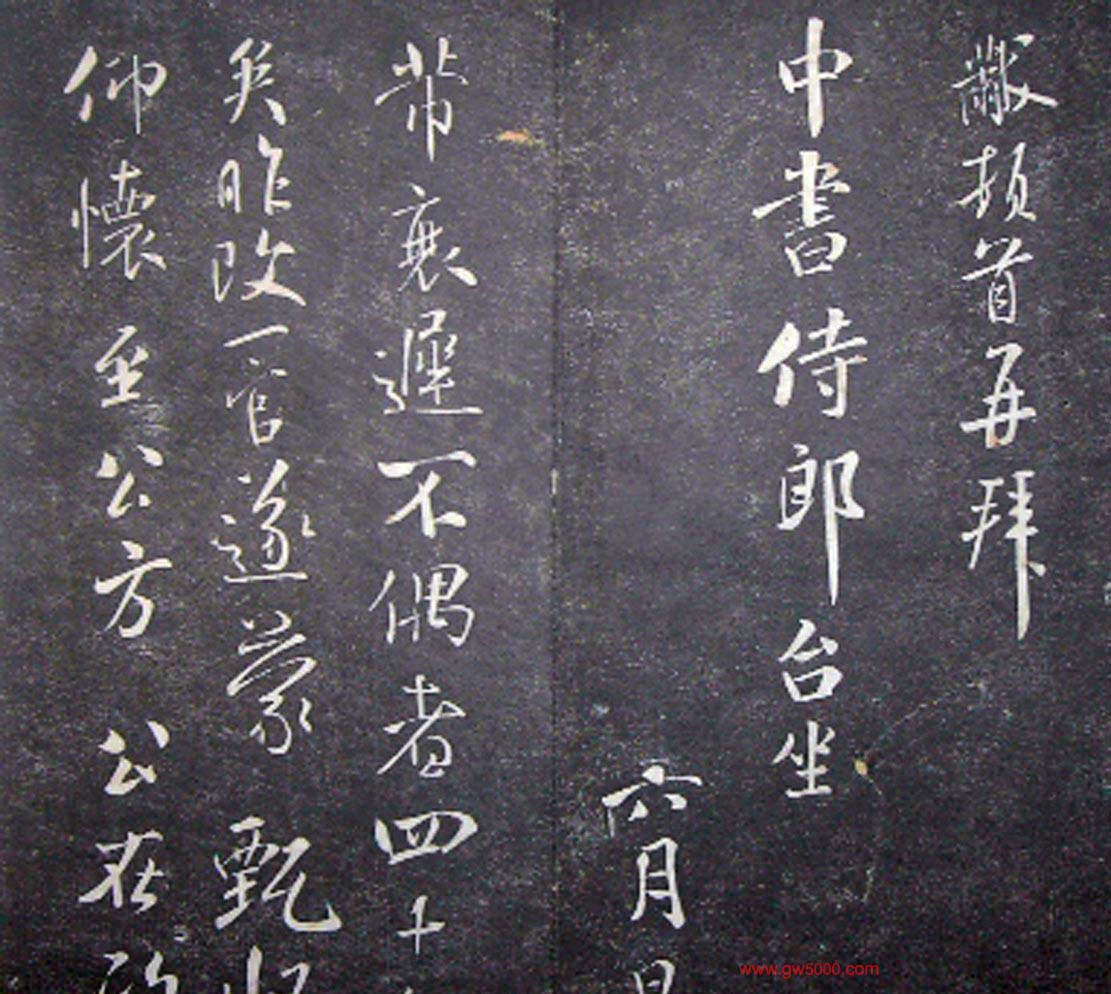 黻頓首再拜
中書侍郎台坐
六月日
芾衰遲不偶者四十
矣昨改一官遂蒙 甄
仰懷至公方 公在
www.gw5000.com